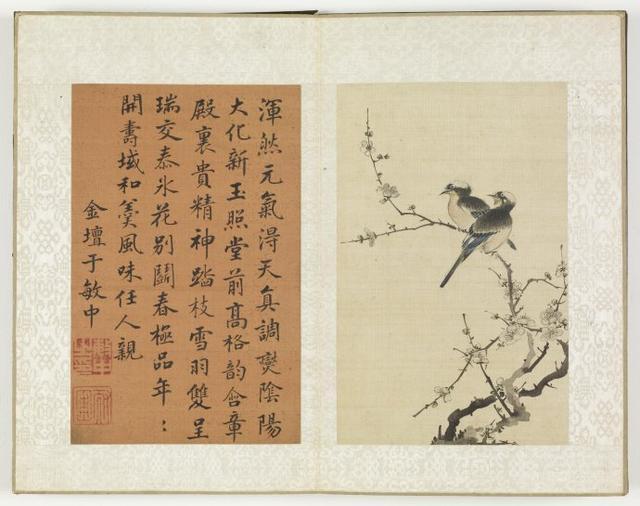 渾然元氣淂天真調爕陰陽
大化新玉照堂前髙格韵含章
殿裏貴精神踏枝雪羽雙呈
瑞交泰氷花别闢春極品年：
開壽域和羹風味任人親
金壇于敏中